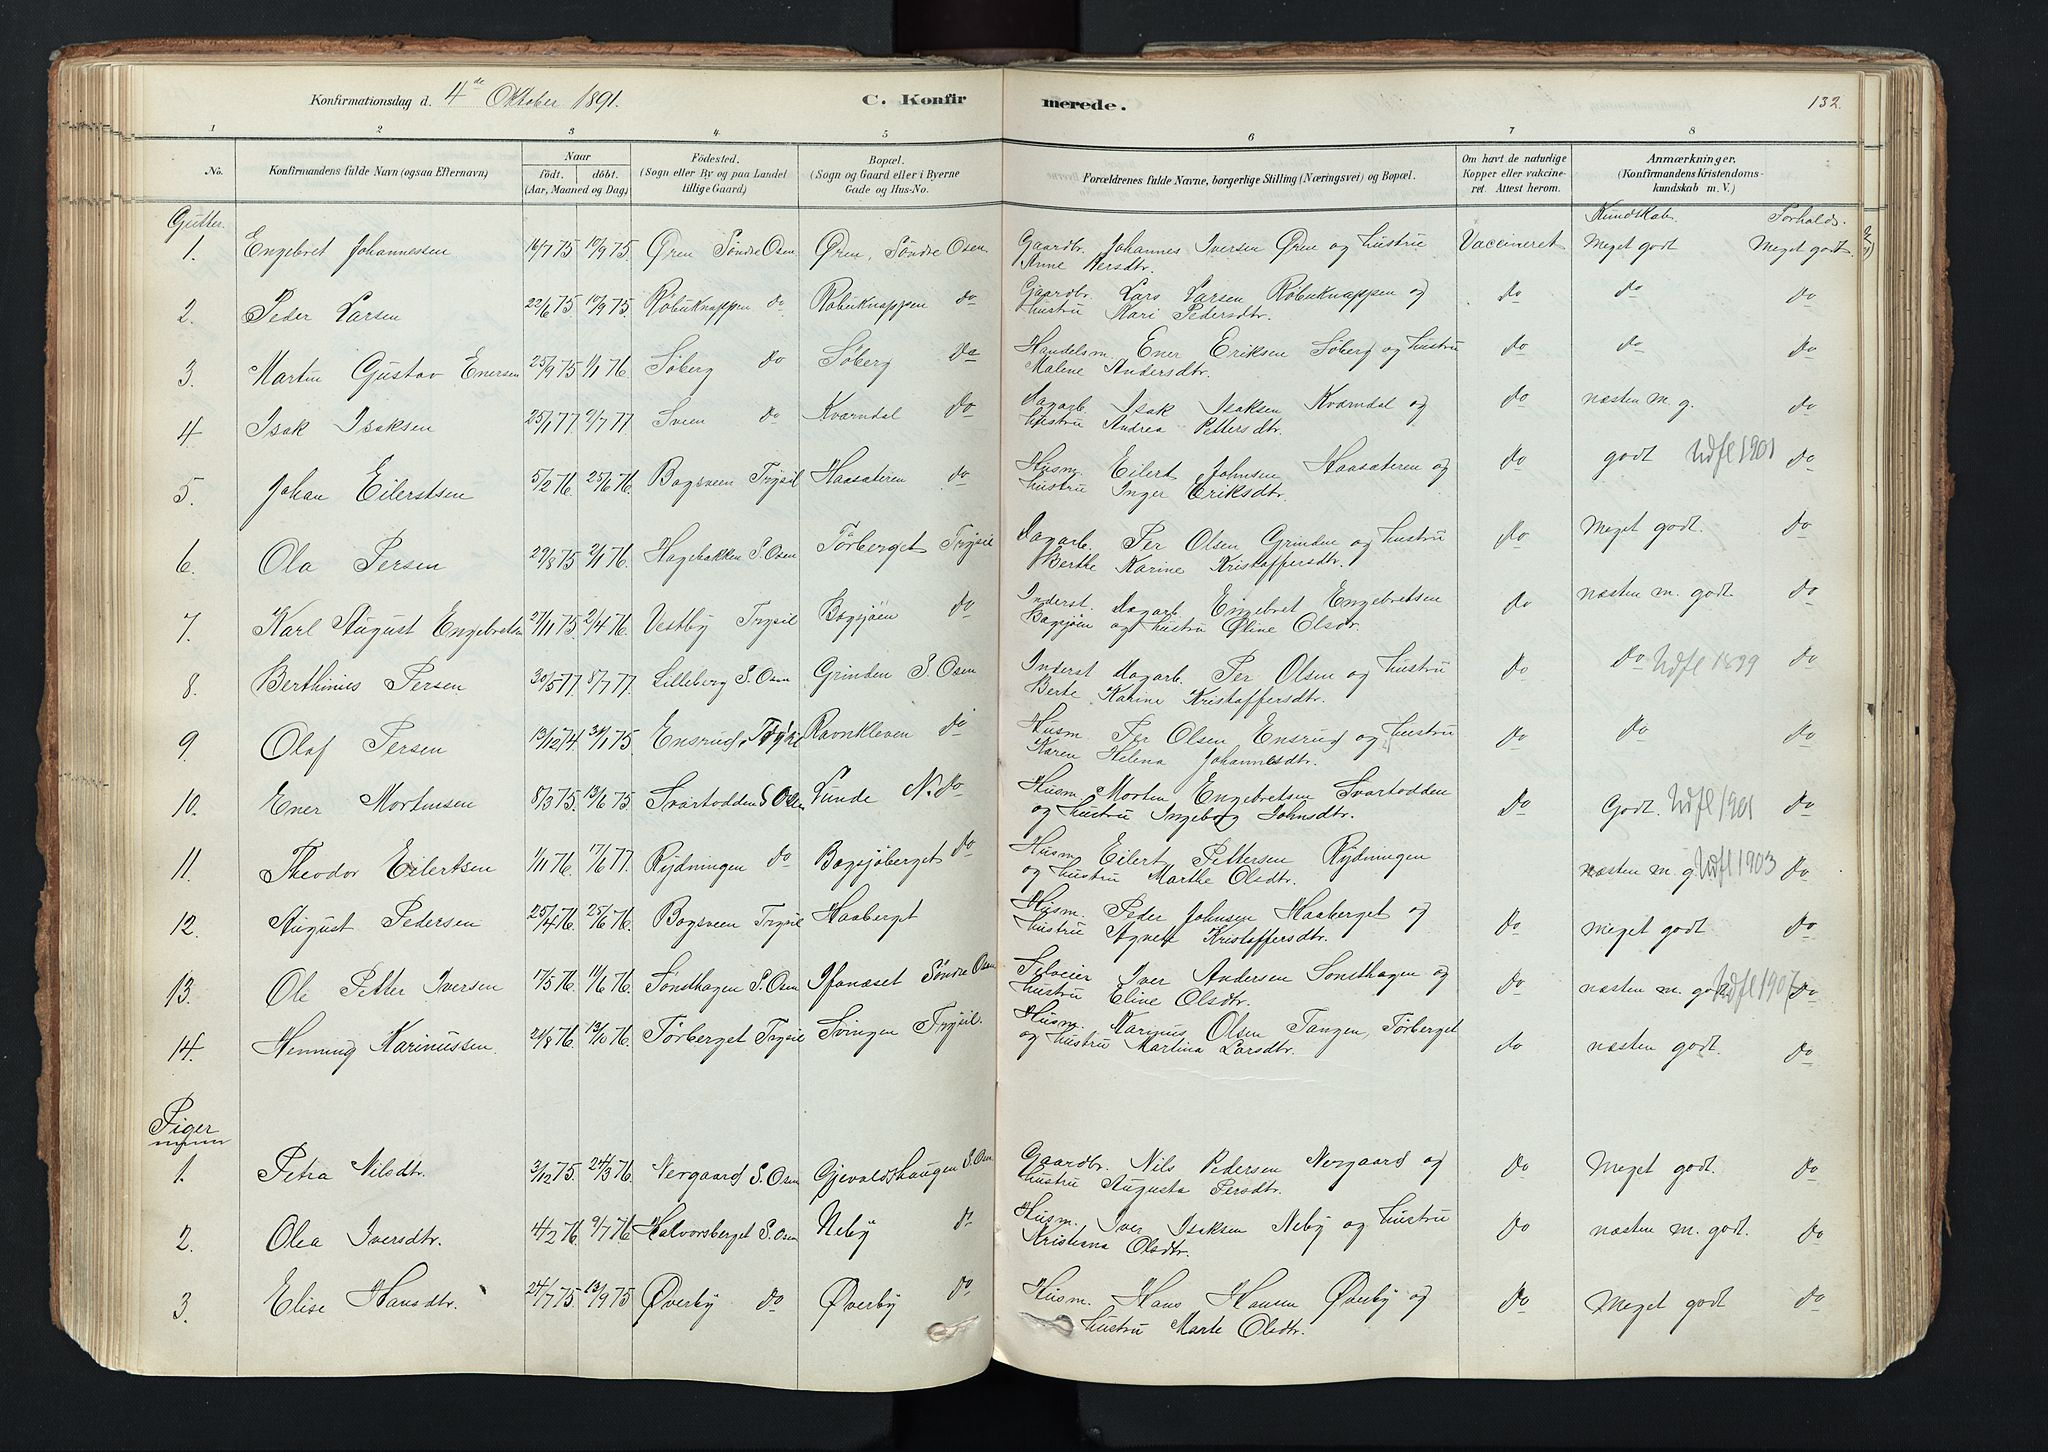 Konfirmationsdag d. 4de Oktober 1891. C. Konfirmerede. 132.
1 2 3 4 5 6 7 8
No. Konfirmandens fulde Navn (ogsaa Efternavn) Naar født. døbt. (Aar, Maaned og Dag) Fødested. (Sogn eller By og paa Landet tillige Gaard) Bopæl. (Sogn og Gaard eller i Byerne Gade og Hus-No. Forældrenes fulde Navne, borgerlige Stilling (Næringsvei) og Bopæl. Om havt de naturlige Kopper eller vakcineret. Attest herom. Anmærkninger. (Konfirmandens Kristendomskundskab m. V.)
Gutter. Kundskab. Forhold.
1. Engebret Johannessen 16/7 75 17/9 75. Øren Søndre Osen Øren, Søndre Osen. Gaardbr. Johannes Iversen Øren og hustru Vaccineret Meget godt Meget godt
Anne Persdtr.
2. Peder Larsen 22/6 75 17/9 75. Røbuknappen do Røbuknappen do Gaardbr. Lars Larsen Røbuknappen og do do do
hustru Kari Pedersdtr.
3. Martin Gustav Enersen 25/9 75 1/1 76. Søberg do Søberg do Handelsm. Ener Eriksen Søberg og hustru do do do
Malene Andersdtr.
4 Isak Isaksen 25/1 77. 2/7 77. Sveen do Kværndal do Dagarb. Isak Isaksen Kværndal og do næsten m. g. do
hustru Andrea Pettersdtr.
5. Johan Eilerstsen 5/2 76. 25/6 76. Bogsveen Trysil Haasæteren do Husm. Eilert Johnsen Haasæteren og do godt Udfl 1901 do
hustru Inger Eriksdtr.
6. Ola Persen 29/8 75 2/1 76. Hagebakken S. Osen Tørberget Trysil Dagarb. Per Olsen Grinden og hustru do Meget godt. do
Berthe Karine Kristoffersdtr.
7. Karl August Engebretsen 27/11 75. 2/4 76. Vestby Trysil Bogsjøen do Inderst. Dagarb. Engebret Engebretsen do næsten m. godt. do
Bogsjøen og hustru Øline Olsdtr.
8. Berthinius Persen 30/5 77. 8/7 77. Lilleberg S. Osen Grinden S. Osen Inderst Dagarb. Per Olsen og hustru do do Udfl 1899 do
Berte Karine Kristoffersdtr.
9. Olaf Persen 13/12 74 31/1 75. Ensrud, Trysil Ravnkleven do Husm. Per Olsen Ensrud og hustru do do do
Karen Helena Johannesdtr.
10. Ener Mortensen 8/3 75. 13/6 75. Svartodden S Osen Sunde N. do Husm. Morten Engebretsen Svartodden do Godt. Udfl 1901 do
og hustru Ingeborg Johnsdtr.
11. Theodor Eilertsen 1/11 76. 17/6 77. Rydningen do Bogsjøberget do Husm. Eilert Pettersen Rydningen næsten m. g. Udfl 1903 do
og hustru Marthe Olsdtr.
12. August Pedersen 25/4 76. 25/6 76. Bogsveen Trysil Haaberget Husm. Peder Johnsen Haaberget og do meget godt do
hustru Agnete Kristoffersdtr.
13. Ole Petter Iversen 17/5 76. 11/6 76. Sønsthagen S. Osen Ifanæset Søndre Osen Selveier Iver Andersen Sønsthagen og do næsten m. godt Udfl 1907 do
hustru Eline Olsdtr.
14. Henning Karinussen 24/8 76. 13/10 76. Tørberget Trysil Svingen Trysil. Husm. Karinus Olsen Tangen, Tørberget do næsten godt. do
og hustru Martina Larsdtr.
Piger
1. Petra Nilsdtr. 3/12 75. 24/3 76. Nergaard S. Osen Gjevaldshaugen S. Osen Gaardbr. Nils Pedersen Nergaard og do Meget godt. do
hustru Augusta Persdtr.
2. Olea Iversdtr. 4/2 76. 9/7 76. Halvorsberget S. Osen Neby do Husm. Iver Isaksen Neby og hustru do næsten m. godt. do
Kristiana Olsdtr.
3. Elise Hansdtr. 24/7 75. 13/9 75 Øverby do Øverby do Husm. Hans Hansen Øverby og do Meget godt do
hustru Marte Olsdtr.